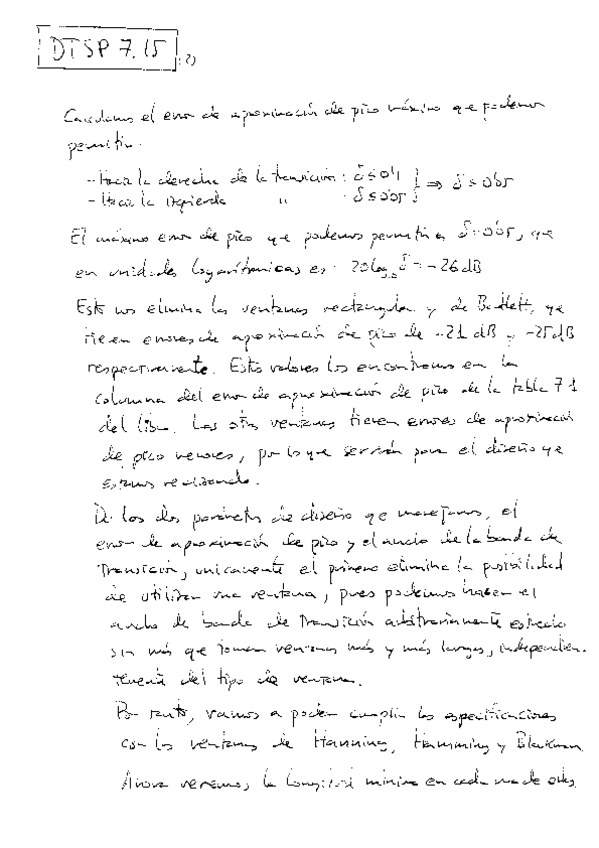 DTSP 7.15
Calculamos el error de aproximación de pico máximo que podemos
permitir.
- Hacia la derecha de la transición: δ ≤ 0'1 } ⇒ δ ≤ 0'05
- Hacia la izquierda " : δ ≤ 0'05
El máximo error de pico que podemos permitir es δ=0'05, que
en unidades logarítmicas es: 20log₁₀ δ = -26 dB
Esto nos elimina las ventanas rectangular y de Bartlett, que
tienen errores de aproximación de pico de -21 dB y -25 dB
respectivamente. Estos valores los encontramos en la
columna del error de aproximación de pico de la tabla 7.1
del libro. Las otras ventanas tienen errores de aproximación
de pico menores, por lo que servirán para el diseño que
estamos realizando.
De los dos parámetros de diseño que manejamos, el
error de aproximación de pico y el ancho de la banda de
transición, unicamente el primero elimina la posibilidad
de utilizar una ventana, pues podemos hacer el
ancho de banda de transición arbitrariamente estrecho
sin más que tomar ventanas más y más largas, independien-
temente del tipo de ventana.
Por tanto, vamos a poder cumplir las especificaciones
con las ventanas de Hanning, Hamming y Blackman.
Ahora veremos la longitud mínima en cada una de ellas.